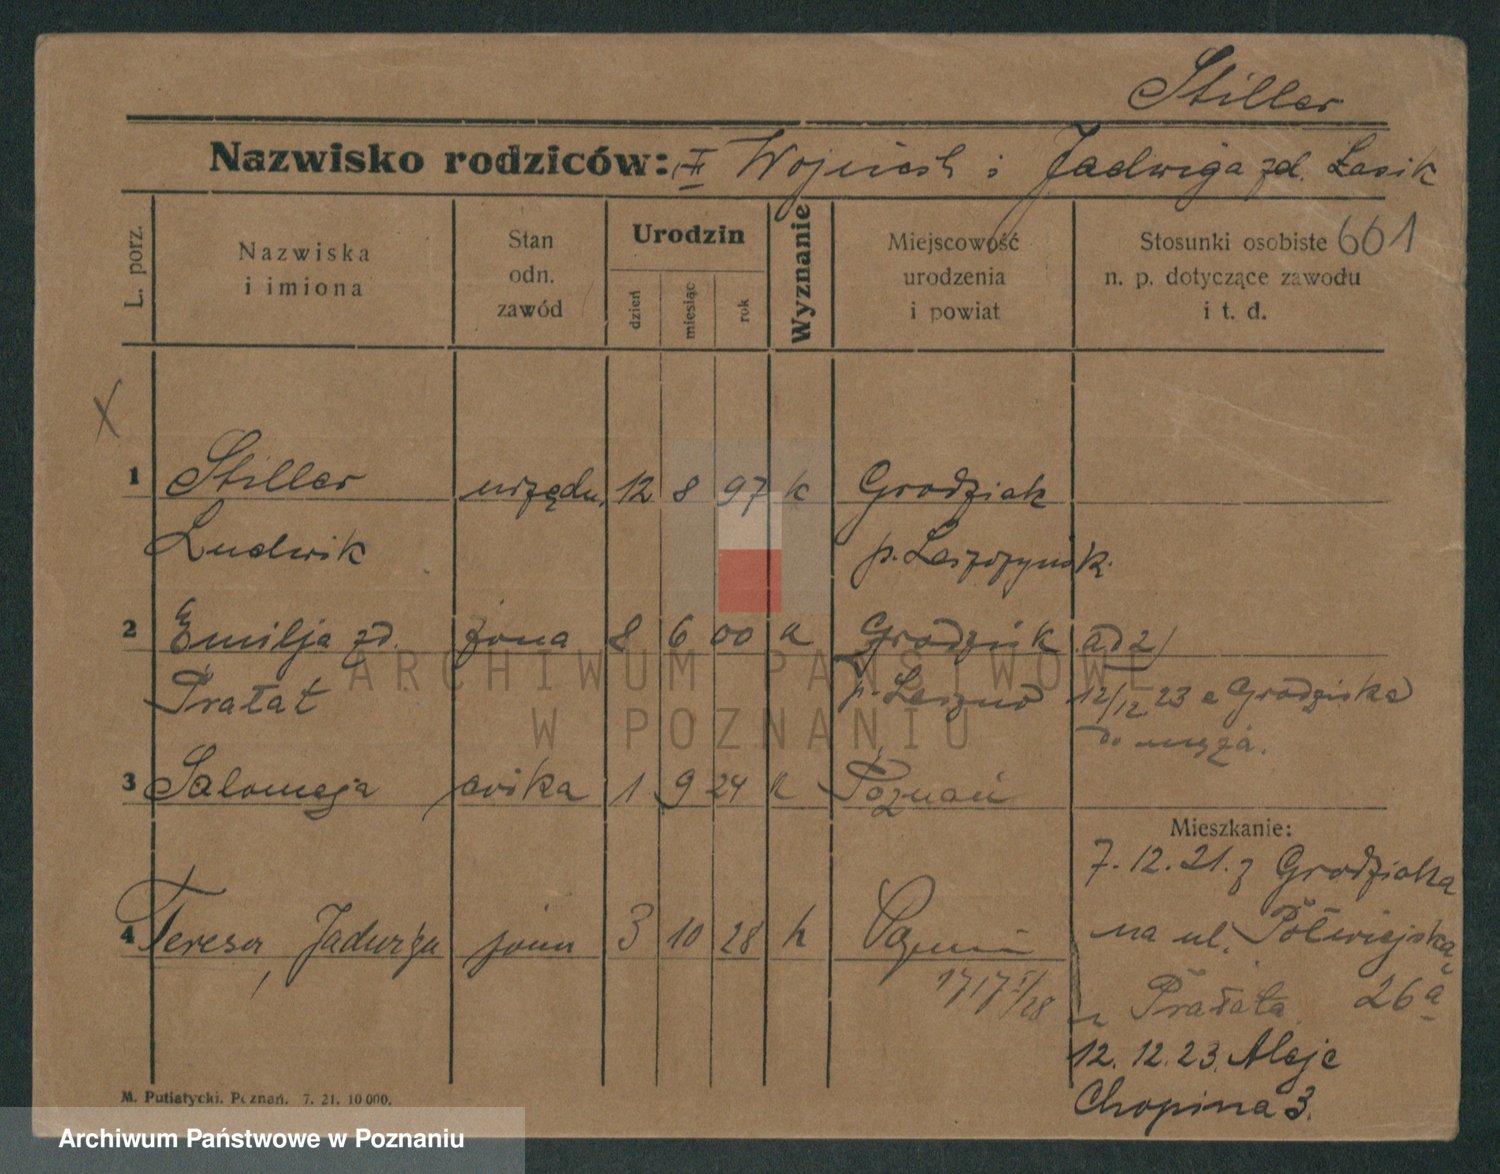 Stiller
Nazwisko rodziców: Wojciech i Jadwiga zd. Łasik
L. porz.
Nazwiska
i imiona
Stan
odn.
zawód
Urodzin
dzień
miesiąc
rok
Wyznanie
Miejscowość
urodzenia
i powiat
Stosunki osobiste 661
n. p. dotyczące zawodu
i t. d.
X
1 Stiller urzędn. 12 8 97 k Grodzisk
Ludwik p. Leszczyńsk.
2 Emilja zd. żona 8 6 00 k Grodzisk ad 2)
Prałat p. Leszno 12/12 23 z Grodziska
do męża.
3 Salomeja córka 1 9 24 k Poznań
Mieszkanie:
7.12.21. z Grodziska
4 Teresa, Jadwiga 3 10 28 k Poznań
na ul. Półwiejską
26a
1717
u Prałata
12.12.23. Aleje
Chopina 3.
M. Putiatycki. Poznań. 7. 21. 10 000.
ARCHIWUM PAŃSTWOWE
W POZNANIU
Archiwum Państwowe w Poznaniu